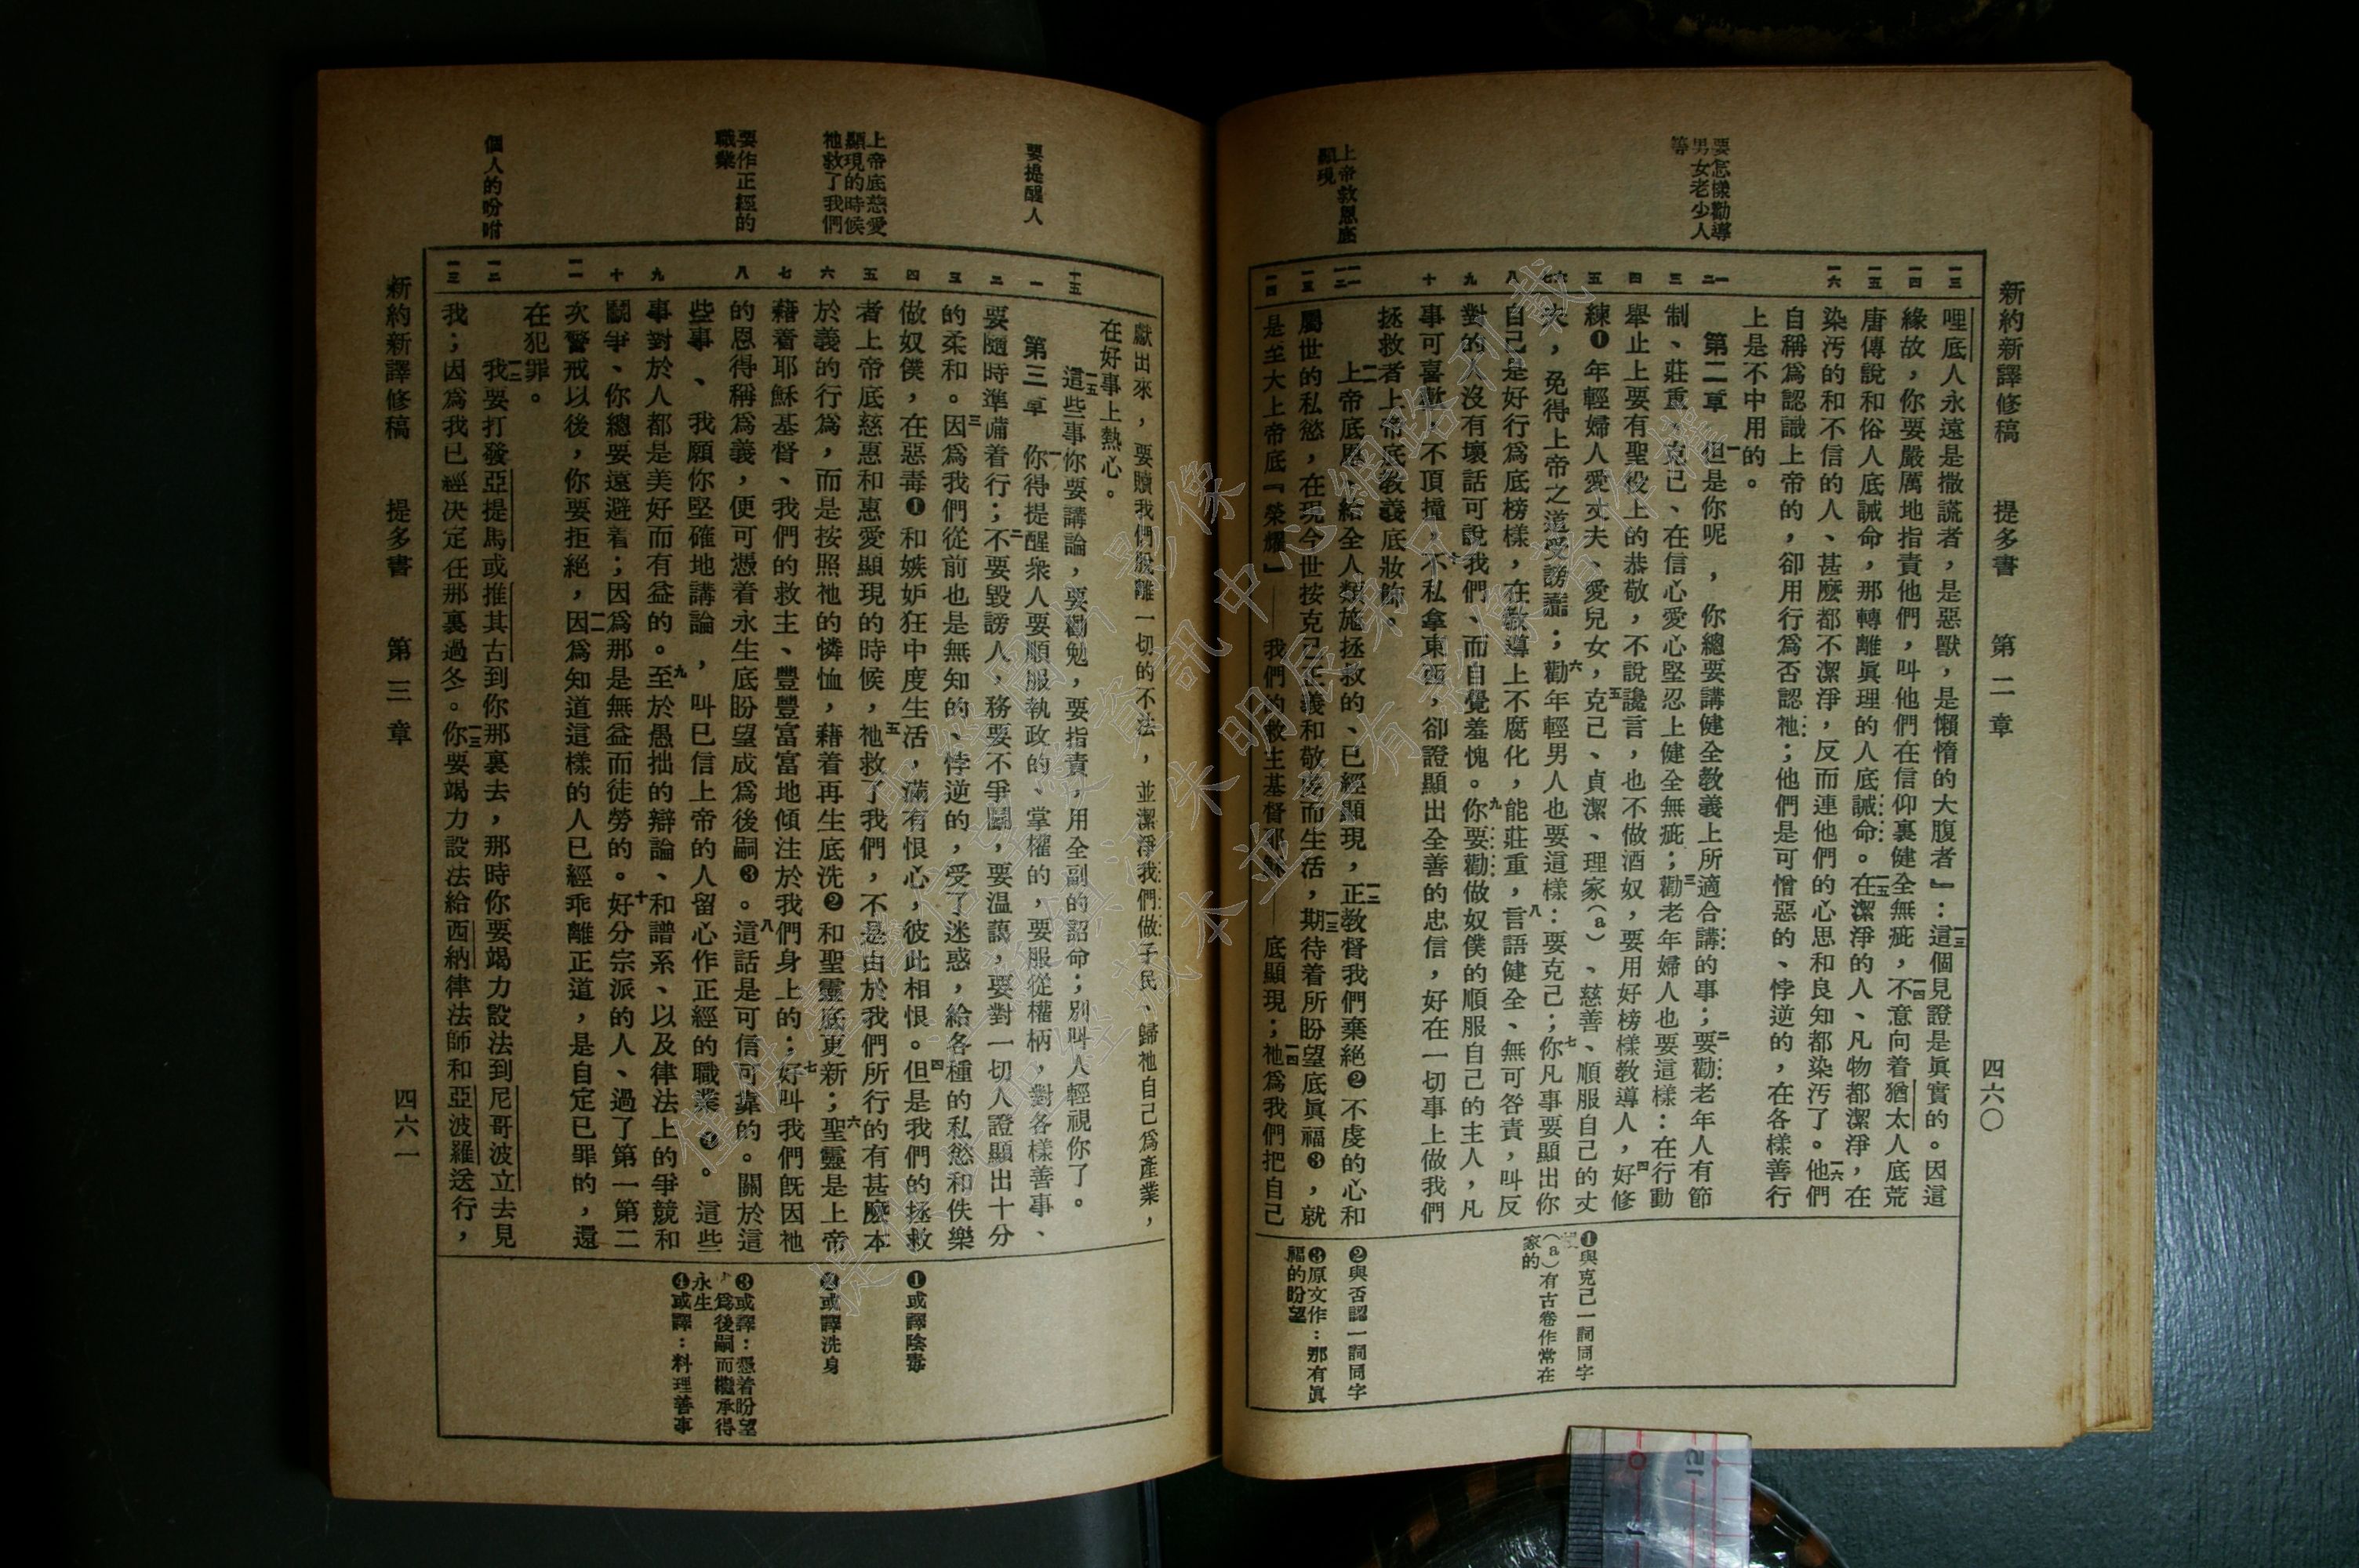 新約新譯修稿 提多書 第二章 四六〇
要怎樣勸導
男女老少人
等
上帝救恩底
顯現
一三 一四 一五 一六 一 二 三 四 五 六 七 八 九 十 一一 一二 一三 一四
哩底人永遠是撒謊者，是惡獸，是懶惰的大腹者』：一三這個見證是眞實的。因這
緣故，你要嚴厲地指責他們，叫他們在信仰裏健全無疵，一四不意向着猶太人底荒
唐傳說和俗人底誡命，那轉離眞理的人底誡命。一五在潔淨的人、凡物都潔淨，在
染污的和不信的人、甚麼都不潔淨，反而連他們的心思和良知都染污了。一六他們
自稱爲認識上帝的，卻用行爲否認祂；他們是可憎惡的、悖逆的，在各樣善行
上是不中用的。
第二章 一但是你呢，你總要講健全教義上所適合講的事；二要勸老年人有節
制、莊重、克己、在信心愛心堅忍上健全無疵；三勸老年婦人也要這樣：在行動
舉止上要有聖役上的恭敬，不說讒言，也不做酒奴，要用好榜樣教導人，四好修
練❶年輕婦人愛丈夫、愛兒女，五克己、貞潔、理家（a）、慈善、順服自己的丈
夫，免得上帝之道受謗讟；六勸年輕男人也要這樣：要克己；七你凡事要顯出你
自己是好行爲底榜樣，在教導上不腐化，能莊重，八言語健全、無可咎責，叫反
對的人沒有壞話可說我們、而自覺羞愧。九你要勸做奴僕的順服自己的主人，凡
事可喜歡，不頂撞，十不私拿東西，卻證顯出全善的忠信，好在一切事上做我們
拯救者上帝底教義底妝飾。
一一上帝底恩、給全人類施拯救的、已經顯現，一二正教督我們棄絕❷不虔的心和
屬世的私慾，在現今世按克己正義和敬虔而生活，一三期待着所盼望底眞福❸，就
是至大上帝底『榮耀』——我們的救主基督耶穌——底顯現；一四祂爲我們把自己
❶與克己一詞同字
（a）有古卷作常在
家的
❷與否認一詞同字
❸原文作：那有眞
福的盼望
新約新譯修稿 提多書 第三章 四六一
要提醒人
上帝底慈愛
顯現的時候
祂救了我們
要作正經的
職業
個人的吩咐
十五 一 二 三 四 五 六 七 八 九 十 一一 一二 一三
獻出來，要贖我們脫離一切的不法，並潔淨我們做子民、歸祂自己爲產業，
在好事上熱心。
一五這些事你要講論，要勸勉，要指責，用全副的詔命；別叫人輕視你了。
第三章 一你得提醒衆人要順服執政的、掌權的，要服從權柄，對各樣善事、
要隨時準備着行；二不要毀謗人，務要不爭鬭，要温藹，要對一切人證顯出十分
的柔和。三因爲我們從前也是無知的、悖逆的，受了迷惑，給各種的私慾和佚樂
做奴僕，在惡毒❶和嫉妒狂中度生活，滿有恨心，彼此相恨。四但是我們的拯救
者上帝底慈惠和惠愛顯現的時候，五祂救了我們，不是由於我們所行的有甚麼本
於義的行爲，而是按照祂的憐恤，藉着再生底洗❷和聖靈底更新；六聖靈是上帝
藉着耶穌基督、我們的救主、豐豐富富地傾注於我們身上的；七好叫我們旣因祂
的恩得稱爲義，便可憑着永生底盼望成爲後嗣❸。八這話是可信可靠的。關於這
些事、我願你堅確地講論，叫已信上帝的人留心作正經的職業❹。這些
事對於人都是美好而有益的。九至於愚拙的辯論、和譜系、以及律法上的爭競和
鬭爭、你總要遠避着；因爲那是無益而徒勞的。十好分宗派的人、過了第一第二
次警戒以後，你要拒絕，一一因爲知道這樣的人已經乖離正道，是自定已罪的，還
在犯罪。
一二我要打發亞提馬或推其古到你那裏去，那時你要竭力設法到尼哥波立去見
我；因爲我已經決定在那裏過冬。一三你要竭力設法給西納律法師和亞波羅送行，
❶或譯陰毒
❷或譯洗身
❸或譯：憑着盼望
，爲後嗣而繼承得
永生
❹或譯：料理善事